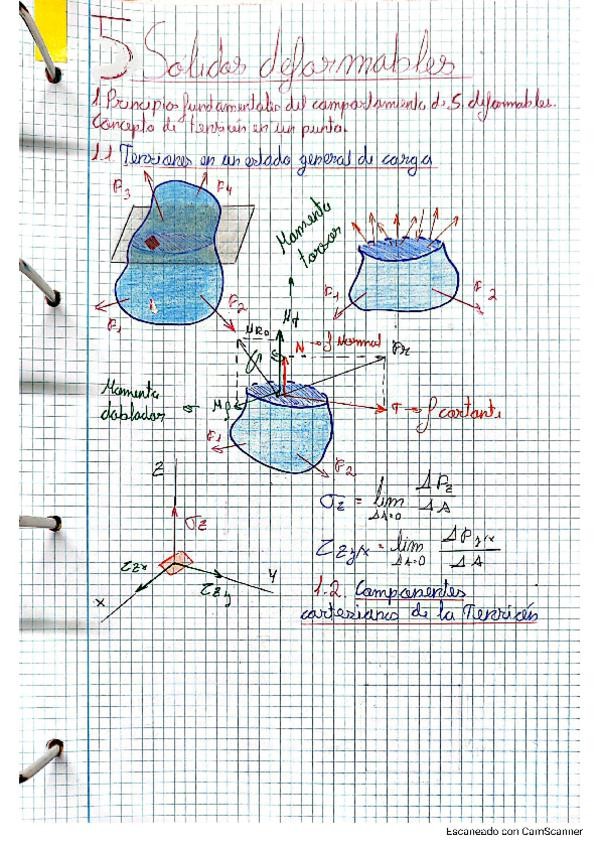 5 Solidos deformables
1. Principios fundamentales del comportamiento de S. deformables.
Concepto de tensión en un punto.
1.1 Tensiones en un estado general de carga
F3
F4
F1
F2
Momento
torsor
MT
F1
F2
MR0
N → f Normal
FR
Momento
doblador
Mf
→ f cortante
F1
F2
Z
σz
τzx
τzy
X
Y
σz = lim ΔA=0 ΔPz / ΔA
τzy/x = lim ΔA=0 ΔPy/x / ΔA
1.2. Componentes
cartesianas de la Tensión
Escaneado con CamScanner